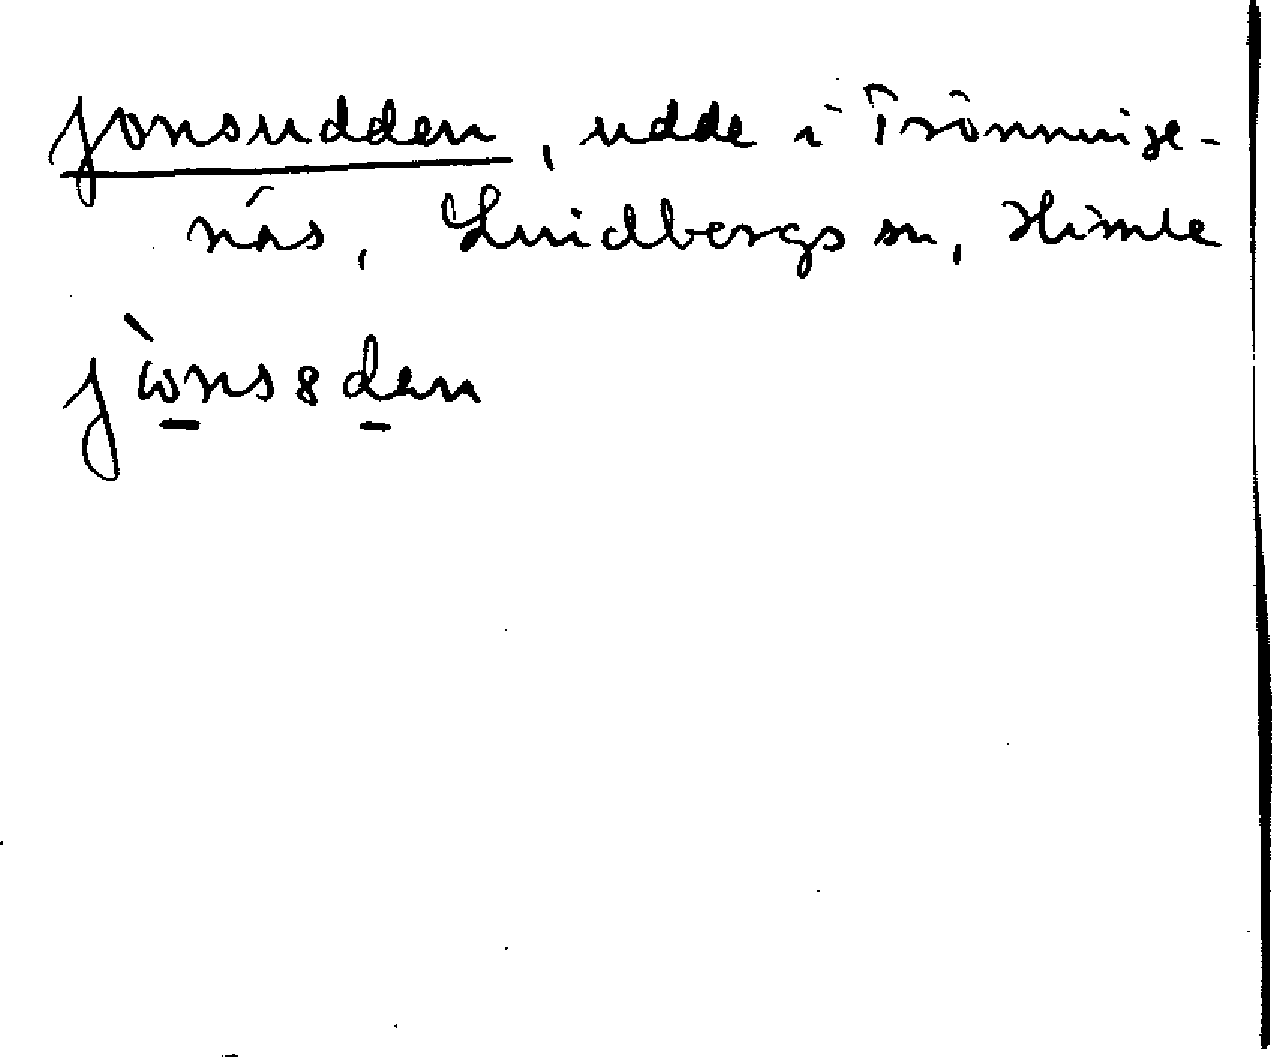 Jonsudden, udde i Trönninge-
näs, Lindbergs sn, Himle
jὼns8den